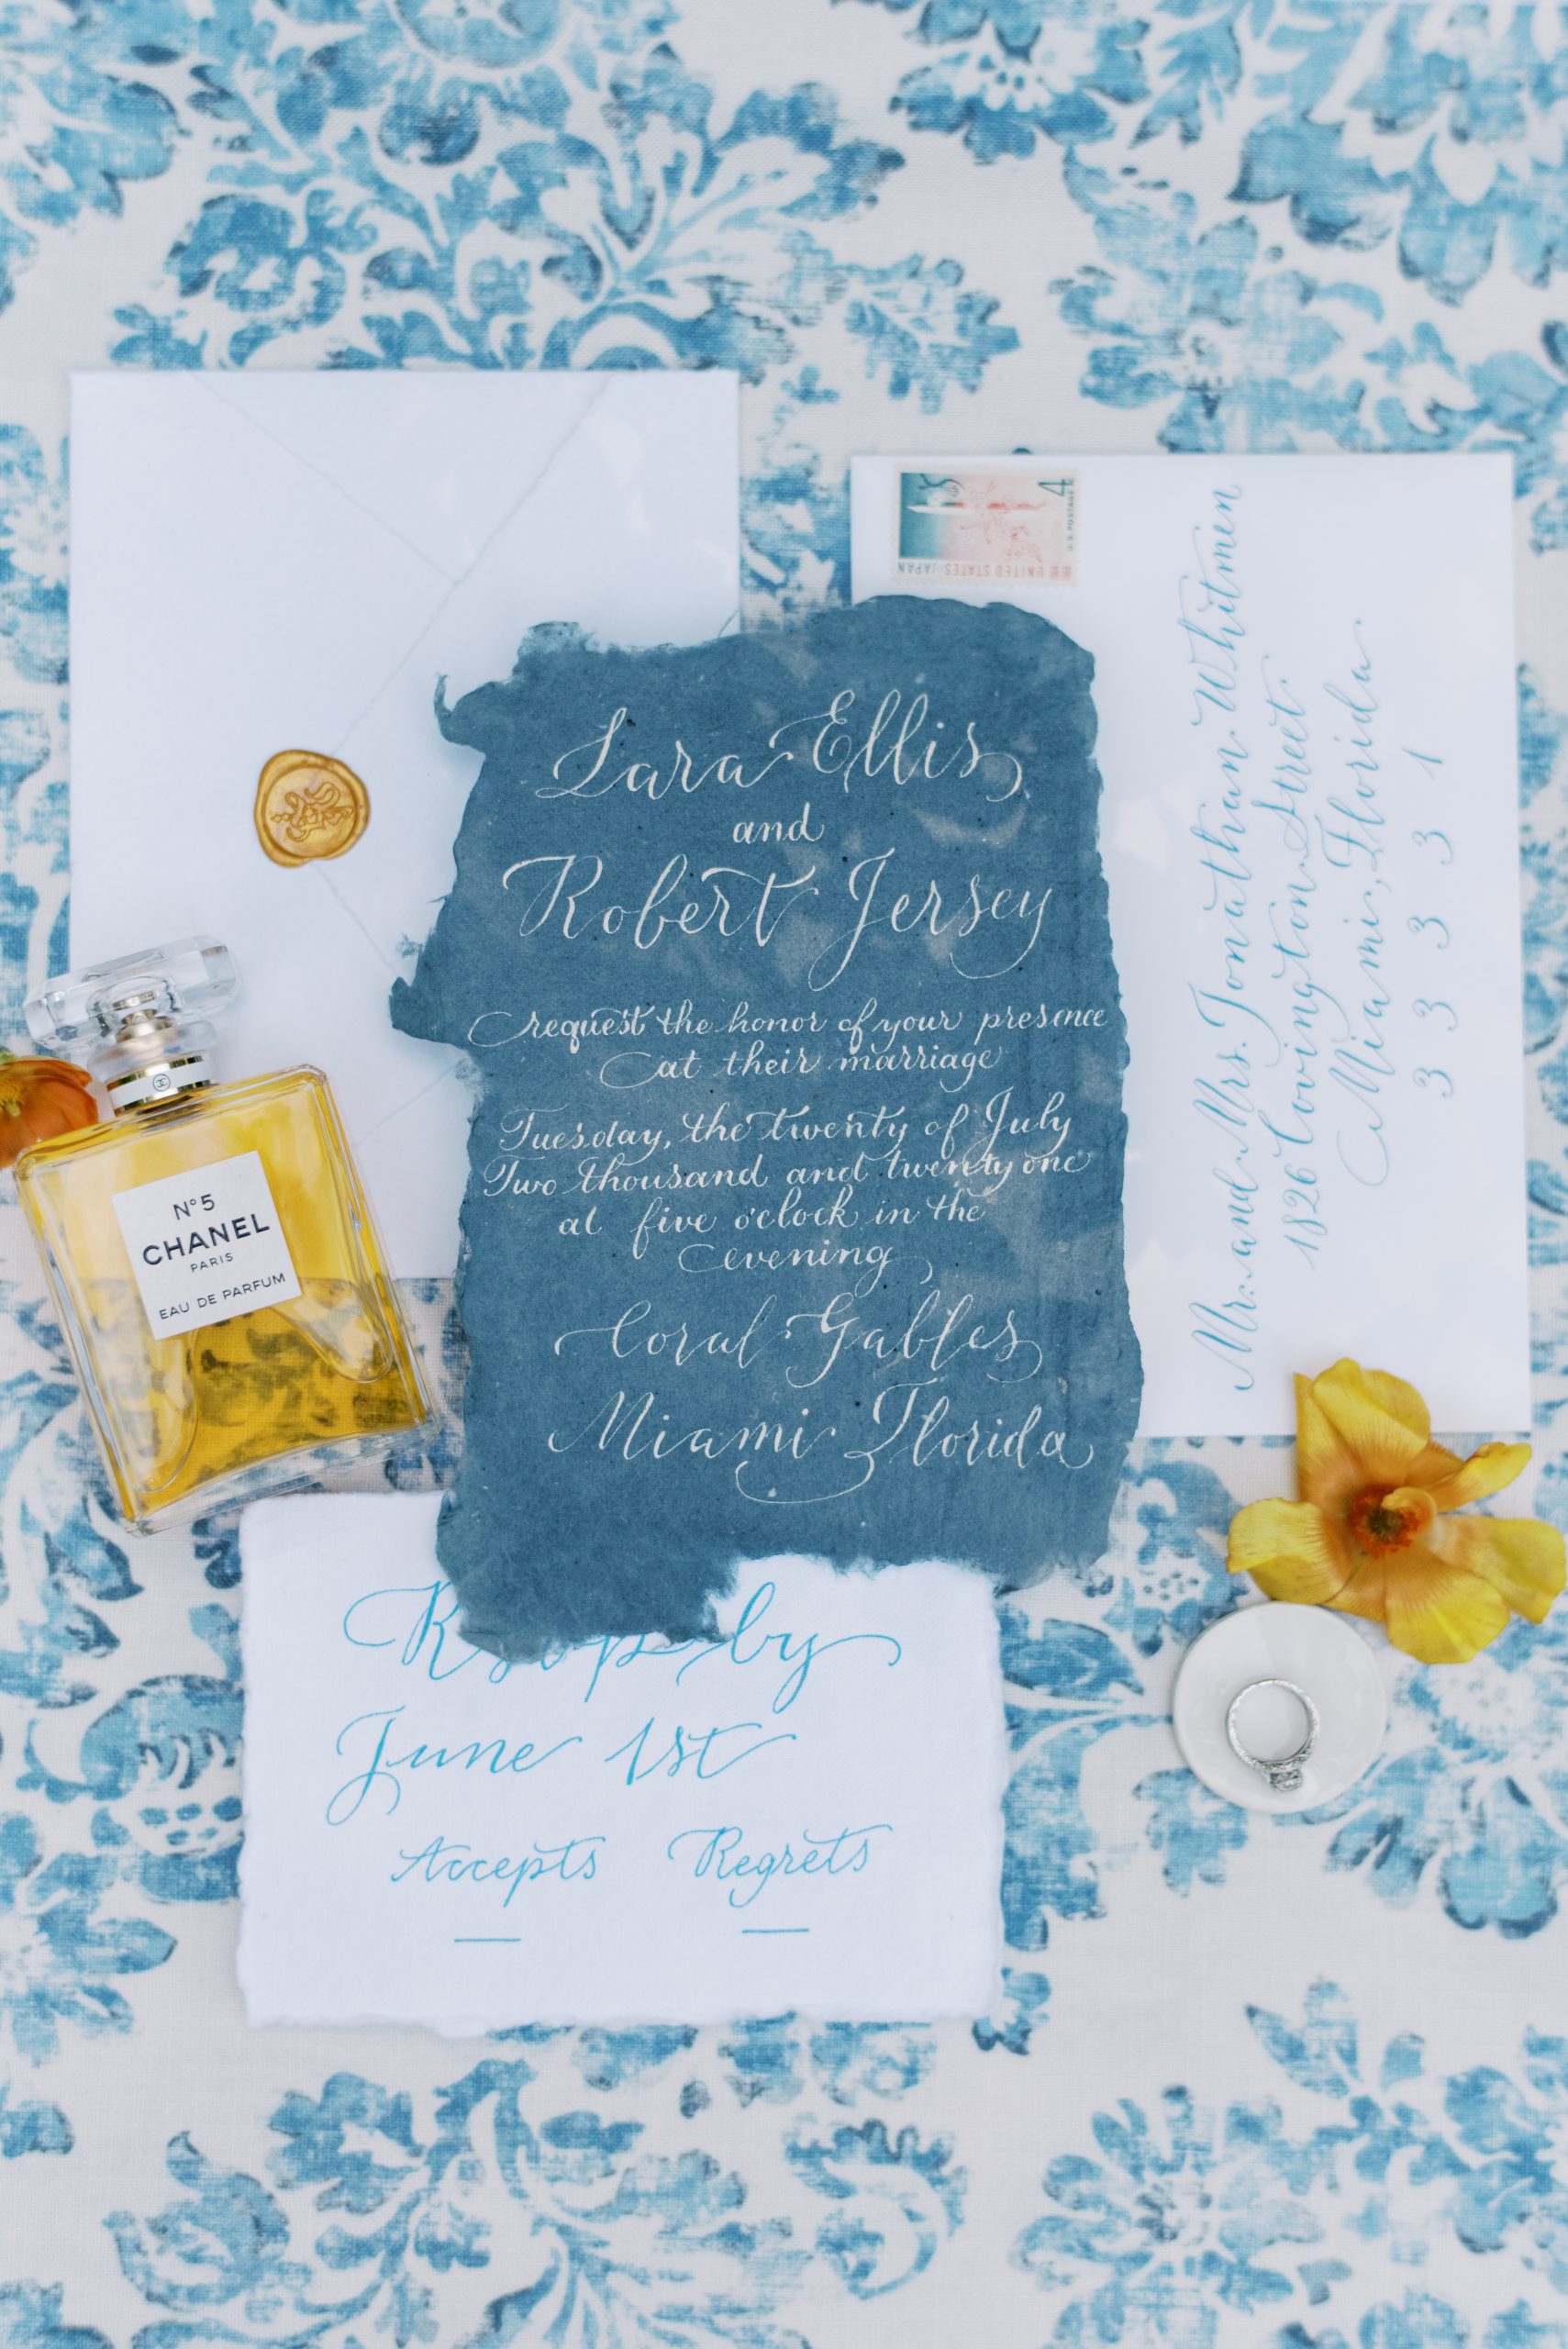 4
U.S. POSTAGE
UNITED STATES JAPAN
Lara Ellis
and
Robert Jersey
request the honor of your presence
at their marriage
Tuesday, the twenty of July
Two thousand and twenty one
at five o'clock in the
evening
Coral Gables
Miami Florida
Mr. and Mrs. Jonathan Whitmen
1826 Covington Street.
Miami, Florida.
3 3 3 3 1
N°5
CHANEL
PARIS
EAU DE PARFUM
Rsvp by
June 1st
Accepts Regrets